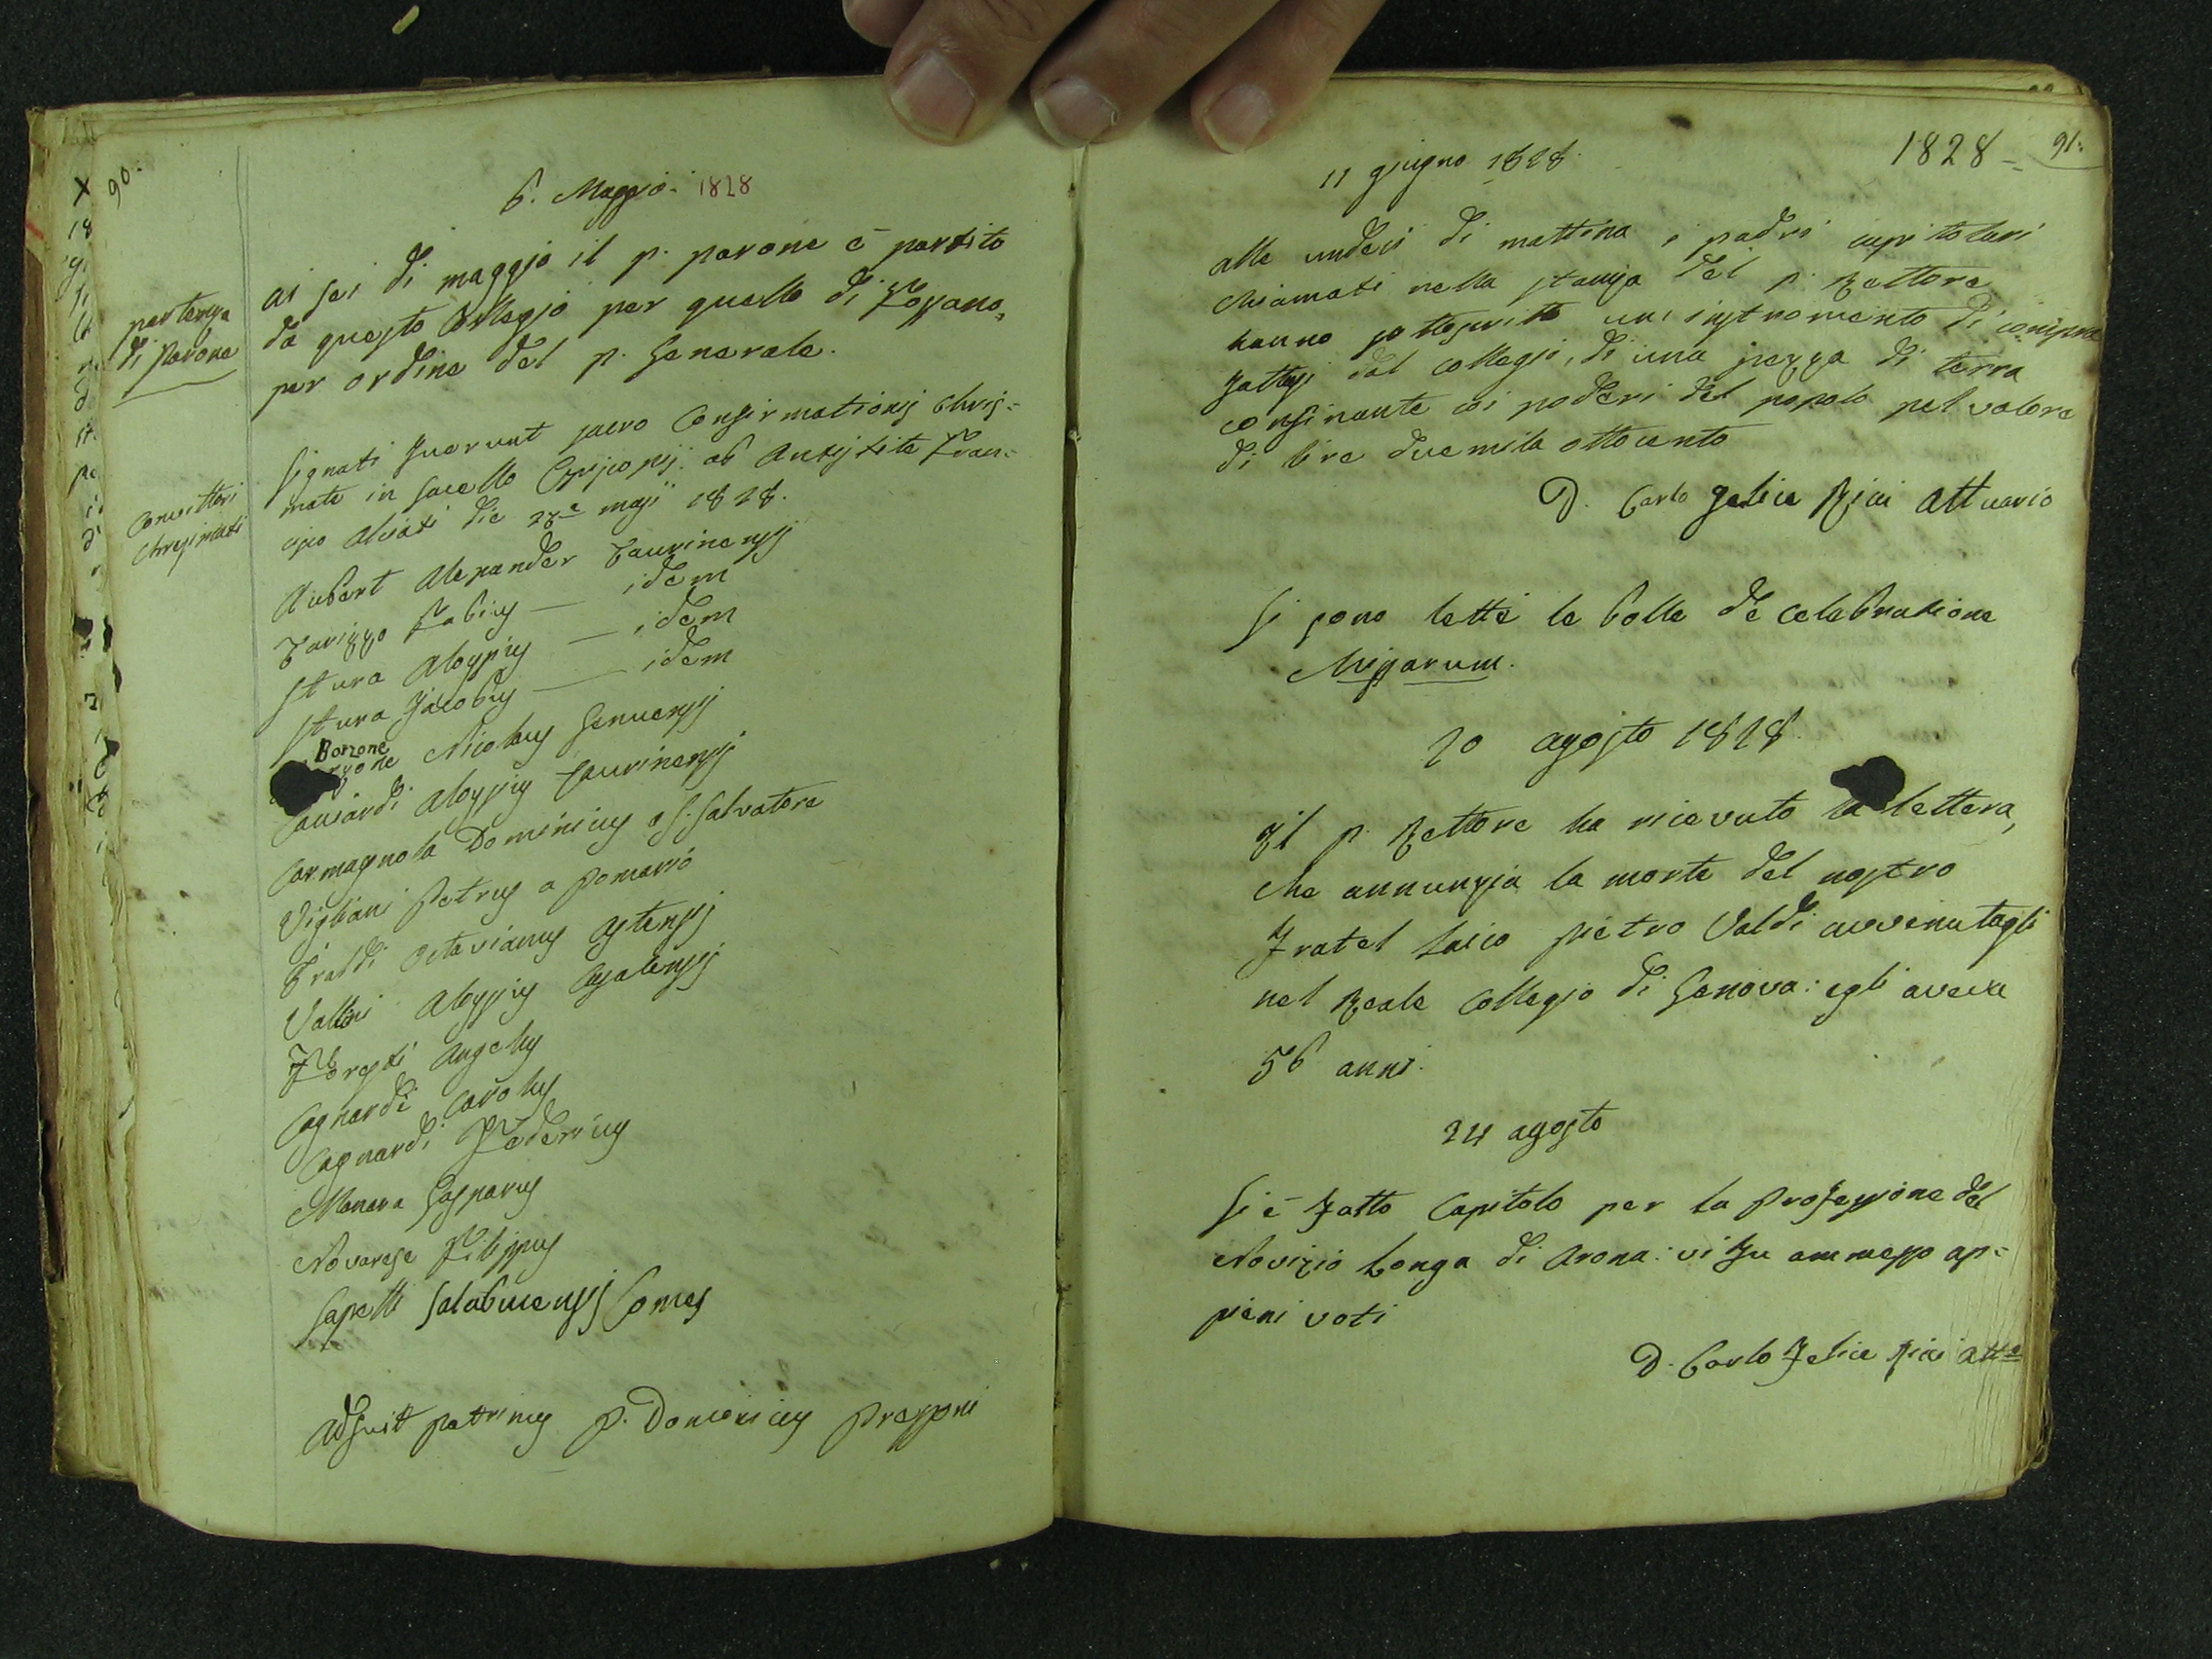 90.
6. Maggio. 1828
partenza
di Parone
ai sei di maggio il p. parone è partito
da questo Collegio per quello di Fossano,
per ordine del p. Generale.
Convittori
Chresimati
Signati fuerunt sacro Confirmationis chris=
mate in sacello Episcopij ab Antistite Fran=
cisco Alciati die 28ª maji 1828.
Aubert Alexander Taurinensis
Tarizzo Fabius — idem
Stura Aloysius — idem
Stura Jacobus — idem
Borzone
Nicolaus Genuensis
Caviardi Aloysius Taurinensis
Carmagnola Dominicus a S. Salvatore
Vigliani Petrus a Pomario
Traldi Octavianus Astensis
Vallini Aloysius Casalensis
Foresti Angelus
Cagnardi Carolus
Cagnardi Federicus
Monera Gasparus
Novarese Filippus
Sapelli Salabuensis Comes
Adfuit patrinus p. Domenicus Pressoni
1828 - 91.
11 giugno 1828.
alle undeci di mattina i padri capitolari
chiamati nella stanza del p. Rettore
hanno sottoscritto un instromento di compre
fattesi dal collegio, di una pezza di terra
confinante coi poderi del popolo pel valore
di lire due mila ottocento
D. Carlo Felice Rici Attuario
Si sono lette le bolle de celebratione
Missarum.
20 agosto 1828.
Il p. Rettore ha ricevuto la lettera,
che annunzia la morte del nostro
Fratel Laico pietro Valdi avvenutagli
nel Reale Collegio di Genova: egli aveva
56 anni.
24 agosto
Si è fatto Capitolo per la Professione del
Novizio Longa di Arona: vi fu ammesso a p=
pieni voti
D. Carlo Felice Rici Attº